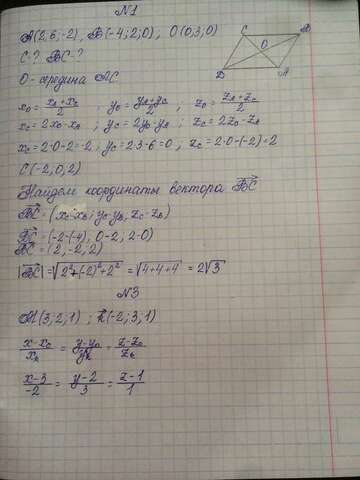 №1
A(2;6;-2), B(-4;2;0), O(0;3;0)
C-? BC-?
C B O D A
O - середина AC.
x₀ = (x_A+x_C)/2 ; y₀ = (y_A+y_C)/2 , z₀ = (z_A+z_C)/2
x_C = 2x₀-x_A ; y_C = 2y₀-y_A ; z_C = 2z₀-z_A
x_C = 2·0-2=-2 ; y_C = 2·3-6=0 , z_C = 2·0-(-2)=2
C(-2,0,2)
Найдем координаты вектора BC
BC = (x_C-x_B; y_C-y_B, z_C-z_B)
BC = (-2-(-4), 0-2, 2-0)
BC = (2,-2;2)
|BC| = √(2²+(-2)²+2²) = √(4+4+4) = 2√3
№3
M(3;2;1) ; k(-2;3;1)
(x-x₀)/x_k = (y-y₀)/y_k = (z-z₀)/z_k
(x-3)/-2 = (y-2)/3 = (z-1)/1